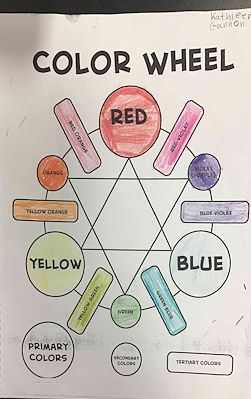 Kathleen
Gannon
COLOR WHEEL
RED
RED ORANGE
RED VIOLET
ORANGE
VIOLET
(PURPLE)
YELLOW ORANGE
BLUE VIOLET
YELLOW
BLUE
YELLOW GREEN
GREEN
GREEN BLUE
PRIMARY
COLORS
SECONDARY
COLORS
TERTIARY COLORS